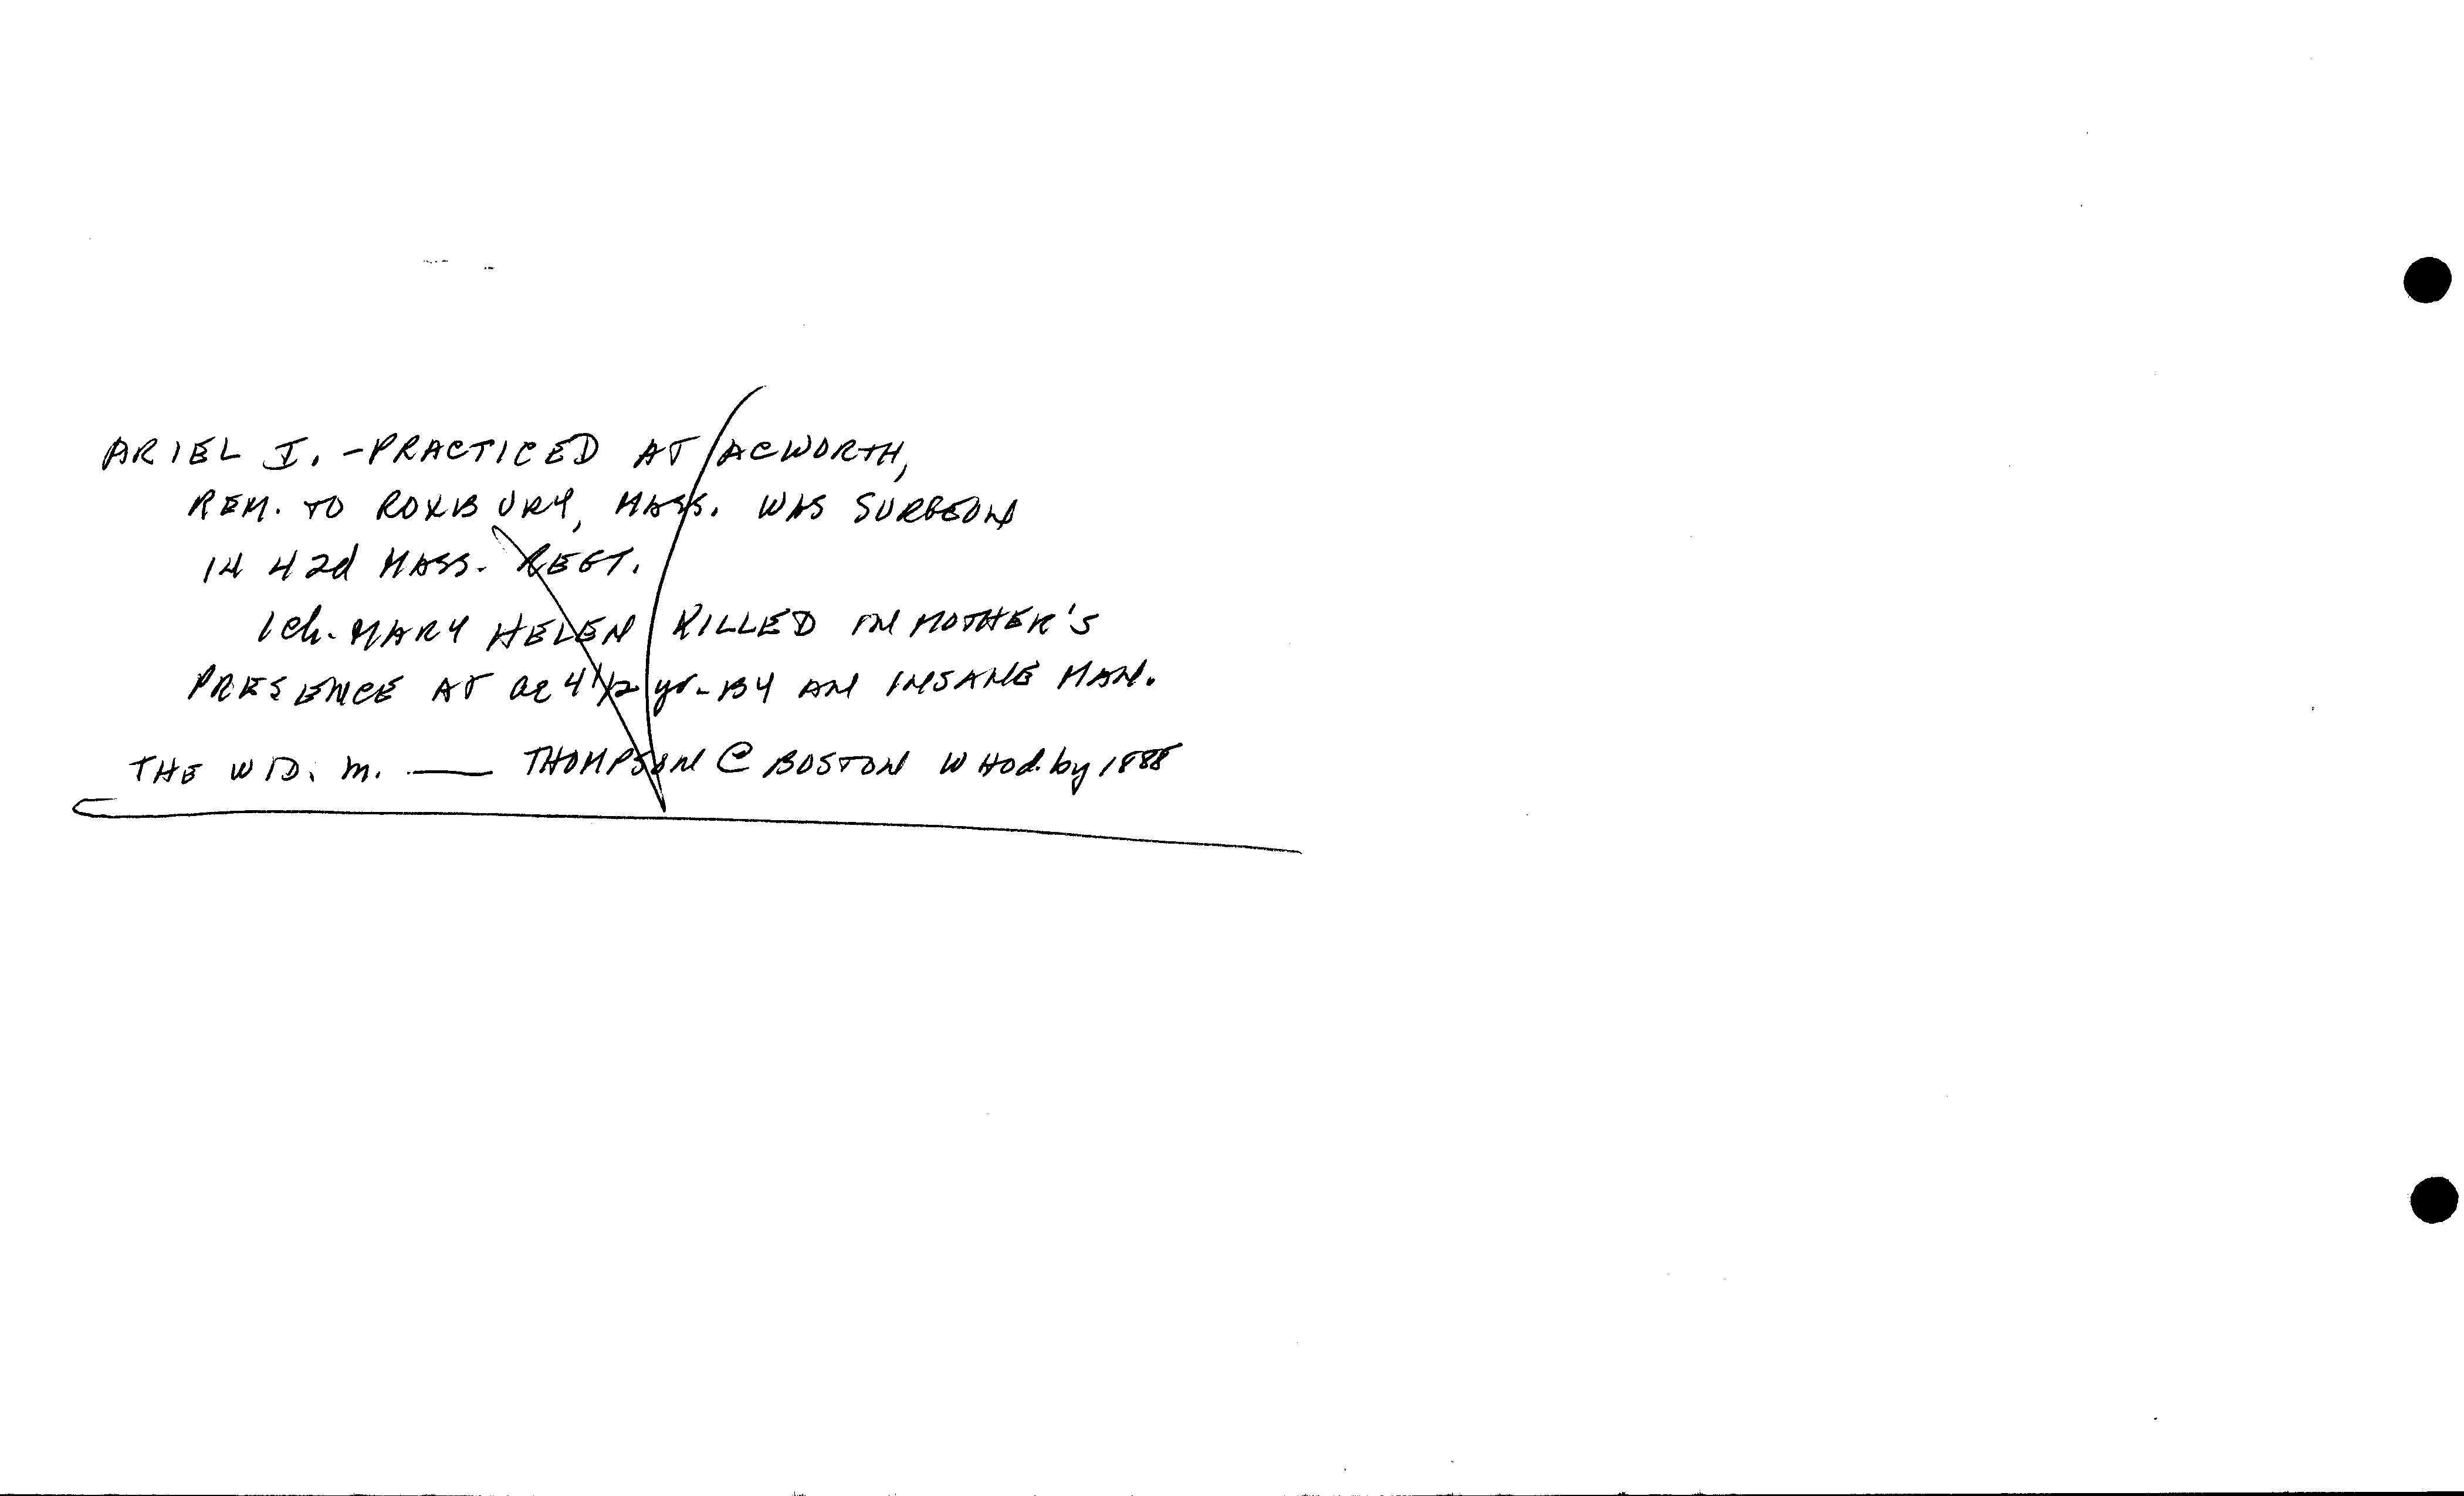 ARIEL I. - PRACTICED AT ACWORTH,
REM. TO ROXBURY, MASS. WAS SURGEON
IN 42d MASS. REGT.
1 ch. MARY HELEN KILLED IN MOTHER'S
PRESENCE AT ae 4 1/2 yr. BY AN INSANE MAN.
THE WID. m. —— THOMPSON @ BOSTON WHO d. by 1888